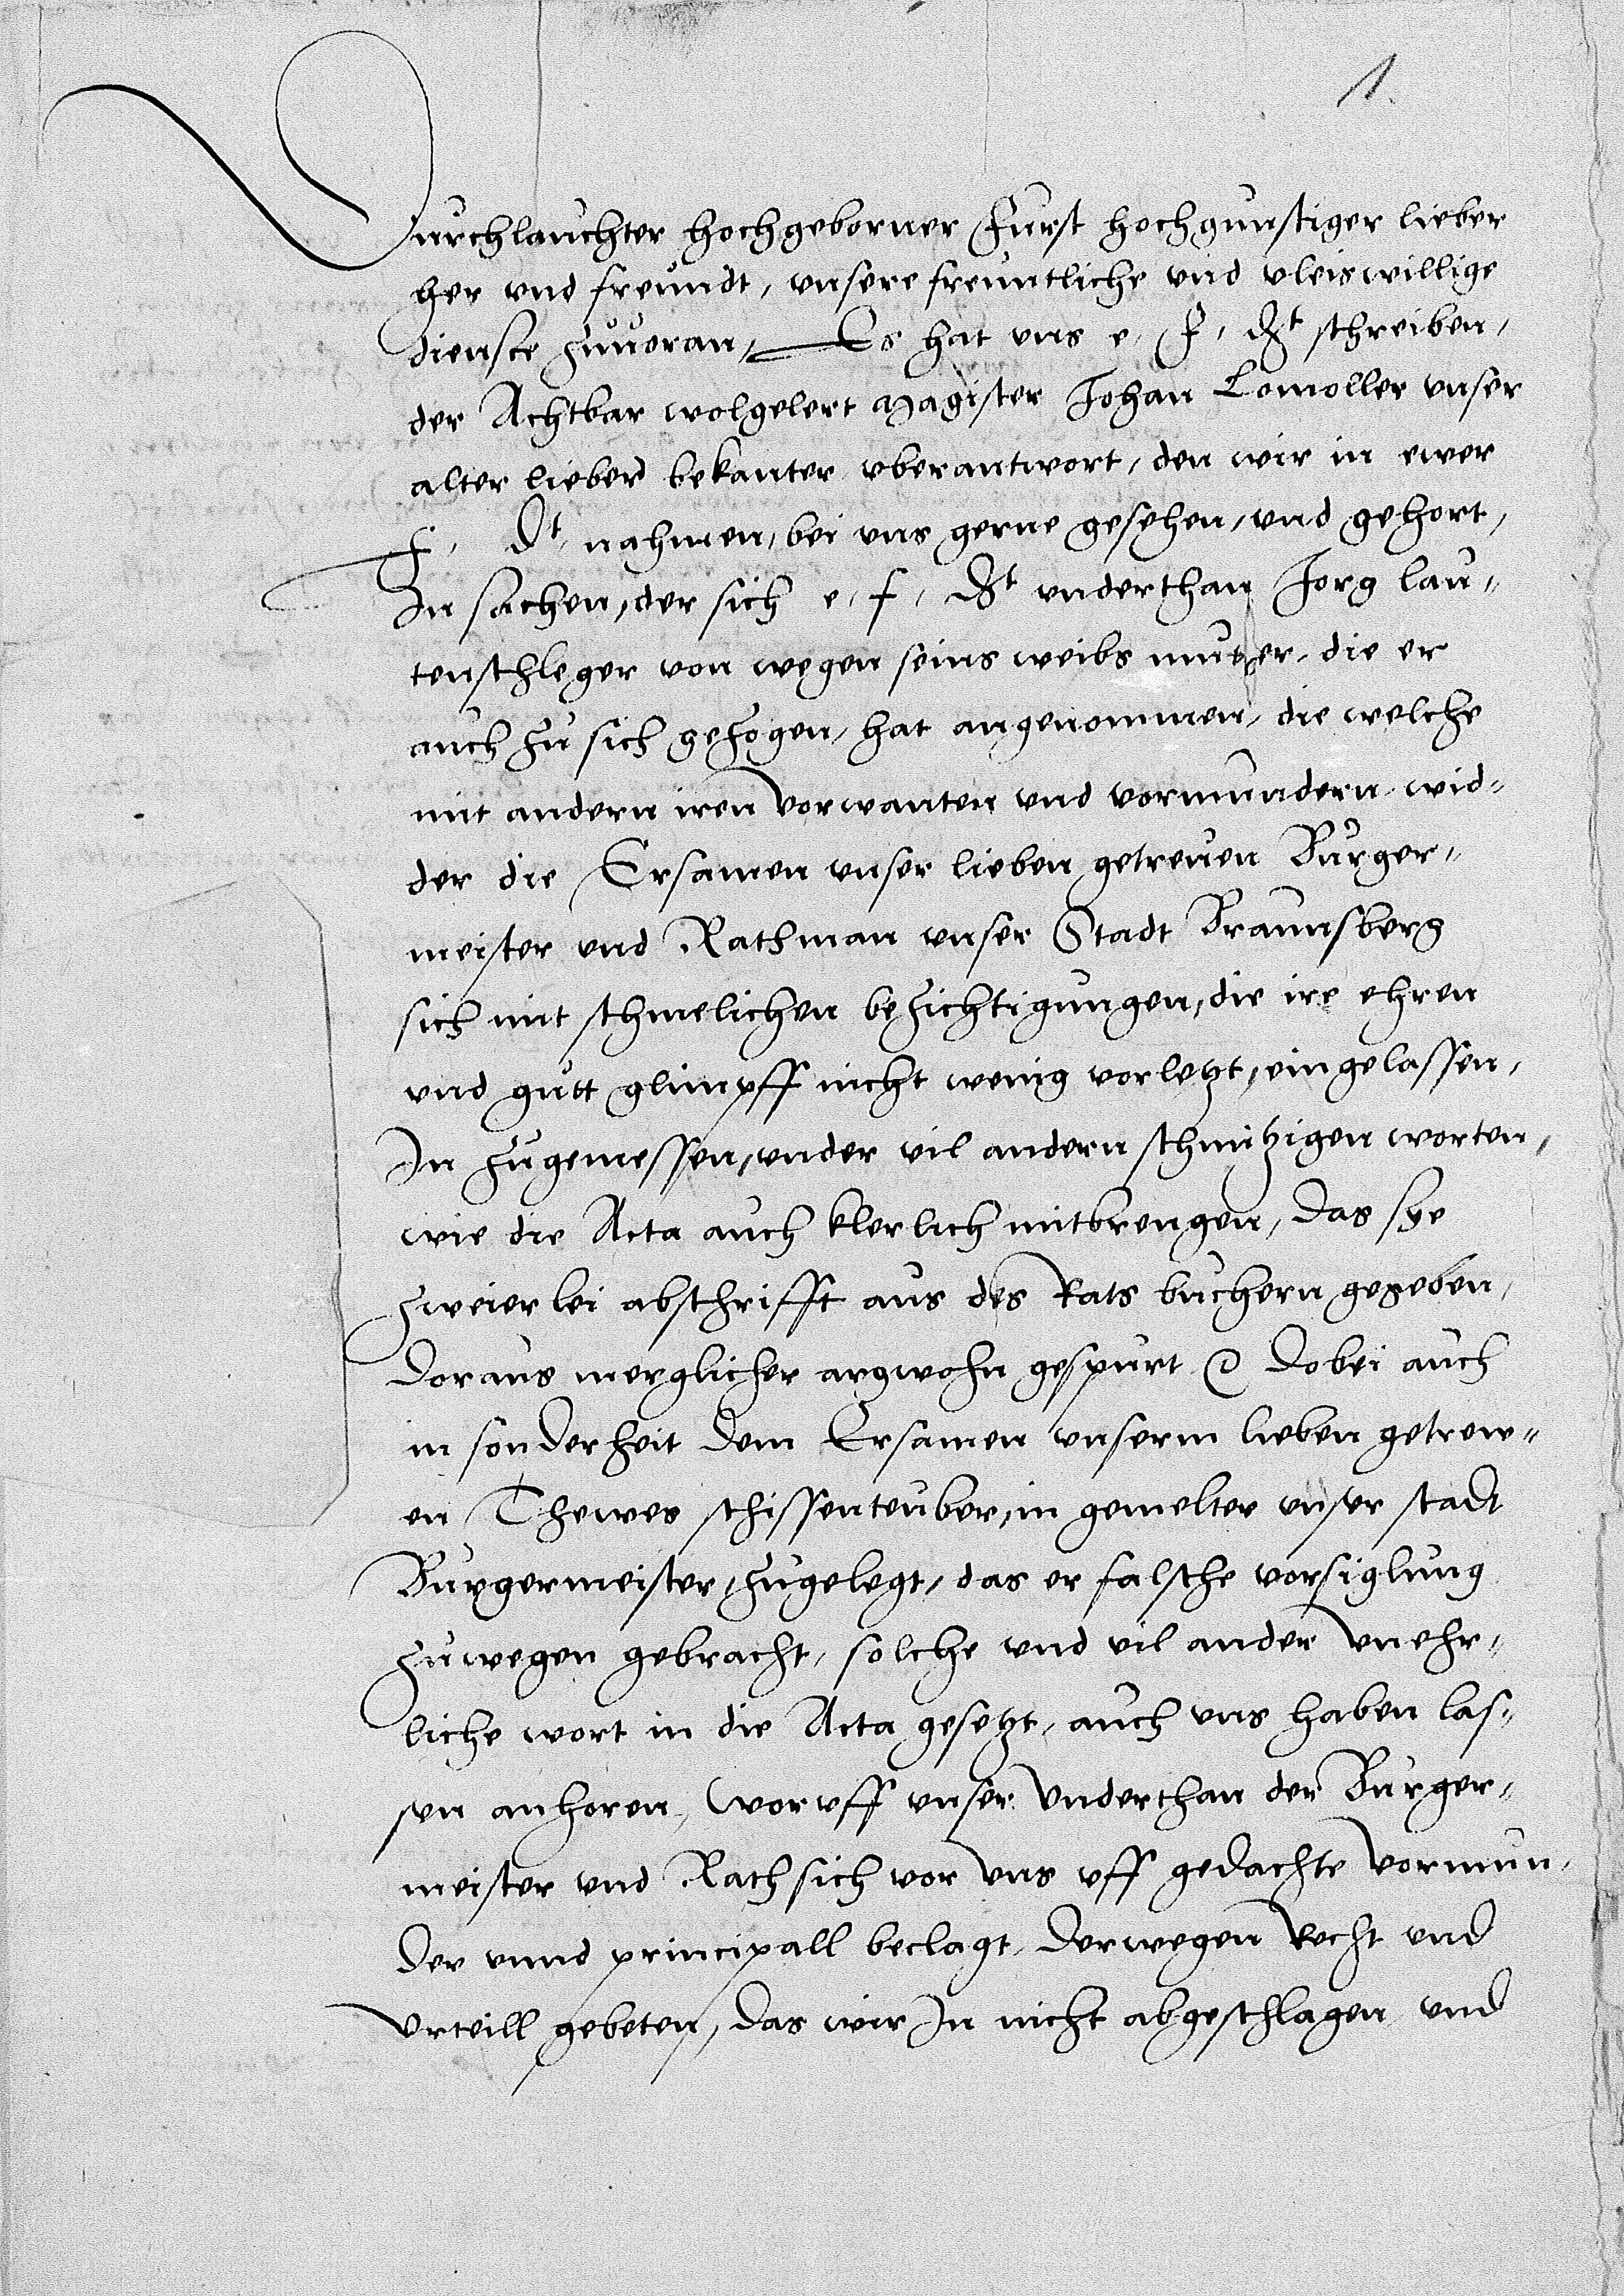 1.
Durchlauchter hochgeborner Furst hochgunstiger lieber
her vnd freundt, vnsere freuntliche vnd vleis willige
dienste zuuoran, Es hat vns e. f. Dt schreiben,
der Achtbar wolgelert Magister Johan Lomoller vnser
alter lieber bekanter vberantwort, den wir in ewer
f. Dt nahmen, bei vns gerne gesehen, vnd gehort,
In sachen, der sich e. f. Dt vnderthan Jorg lau-
tenschleger von wegen seins weibs mutter, die er
auch zu sich gezogen, hat angenommen, die welche
mit andern iren vorwanten vnd vormundern wid-
der die Ersamen vnser lieben getreuen Burger-
meister vnd Rathman vnser Stadt Braunsberg
sich mit schmelichen bezichtigungen, die ire ehren
vnd gutt glimpff nicht wenig vorletzt, eingelassen,
In zugemessen, vnder vil andern schmitzigen worten,
wie die Acta auch klerlich mitbrengen, das sye
zweierlei abschrifft aus des Rats buchern gegeben,
doraus merglicher argwohn gespurt dobei auch
in sonderheit dem Ersamen vnserm lieben getrew-
en Thewes schissenteuber, in gemelter vnser stadt
Burgermeister, zugelegt, das er falsche vorsiglung
zuwegen gebracht, solche vnd vil ander vnehr-
liche wort in die Acta gesetzt, auch vns haben las-
sen anhoren, Woruff vnser Vnderthan der Burger-
meister vnd Rath sich vor vns vff gedachte Vormun-
der vnnd principall beclagt, derwegen Recht vnd
Vrteill gebeten, das wir In nicht abgeschlagen vnd